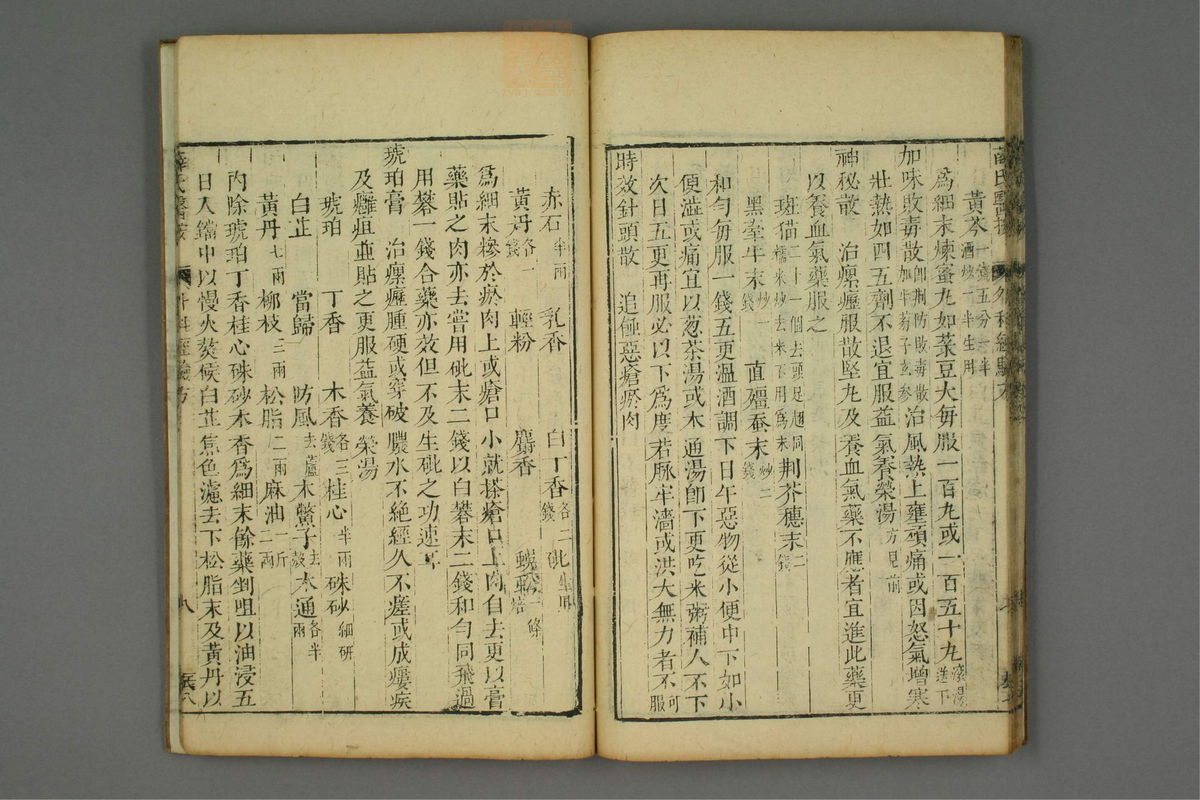 薛氏醫按 外科經驗方
黃芩一錢五分一半酒炒一半生用
爲細末煉蜜丸如菉豆大每服一百丸或一百五十丸滾湯送下
加味敗毒散即荆防敗毒散加牛蒡子玄參治風熱上壅頭痛或因怒氣增寒
壯熱如四五劑不退宜服益氣養榮湯方見前
神秘散 治瘰癧服散堅丸及養血氣藥不應者宜進此藥更
以養血氣藥服之
斑猫二十一個去頭足翅同糯米炒去米不用爲末 荆芥穗末二錢
黑牽牛末炒一錢 直殭蚕末炒二錢
和勻每服一錢五更溫酒調下日午惡物從小便中下如小
便澁或痛宜以葱茶湯或木通湯卽下更吃米粥補人不下
次日五更再服必以下爲度若脉牢濇或洪大無力者不可服
時效針頭散 追飩惡瘡瘀肉
赤石半兩 乳香 白丁香各二錢 砒生用
黃丹各一錢 輕粉 麝香 蜈蚣一條
爲細末摻於瘀肉上或瘡口小就搽瘡口上肉自去更以膏
藥貼之肉亦去嘗用砒末二錢以白礬末二錢和勻同飛過
用礬一錢合藥亦效但不及生砒之功速耳
琥珀膏 治瘰癧腫硬或穿破膿水不絕經久不瘥或成瘻疾
及癰疽並貼之更服益氣養榮湯
琥珀 丁香 木香各三錢 桂心半兩 硃砂細研
白芷 當歸 防風去蘆 木鱉子去殼 木通各半兩
黃丹七兩 柳枝三兩 松脂二兩 麻油一斤二兩
內除琥珀丁香桂心硃砂木香爲細末餘藥剉咀以油浸五
日入鐺中以慢火熬候白芷焦色濾去下松脂末及黃丹以
薛氏醫按 外科經驗方 八